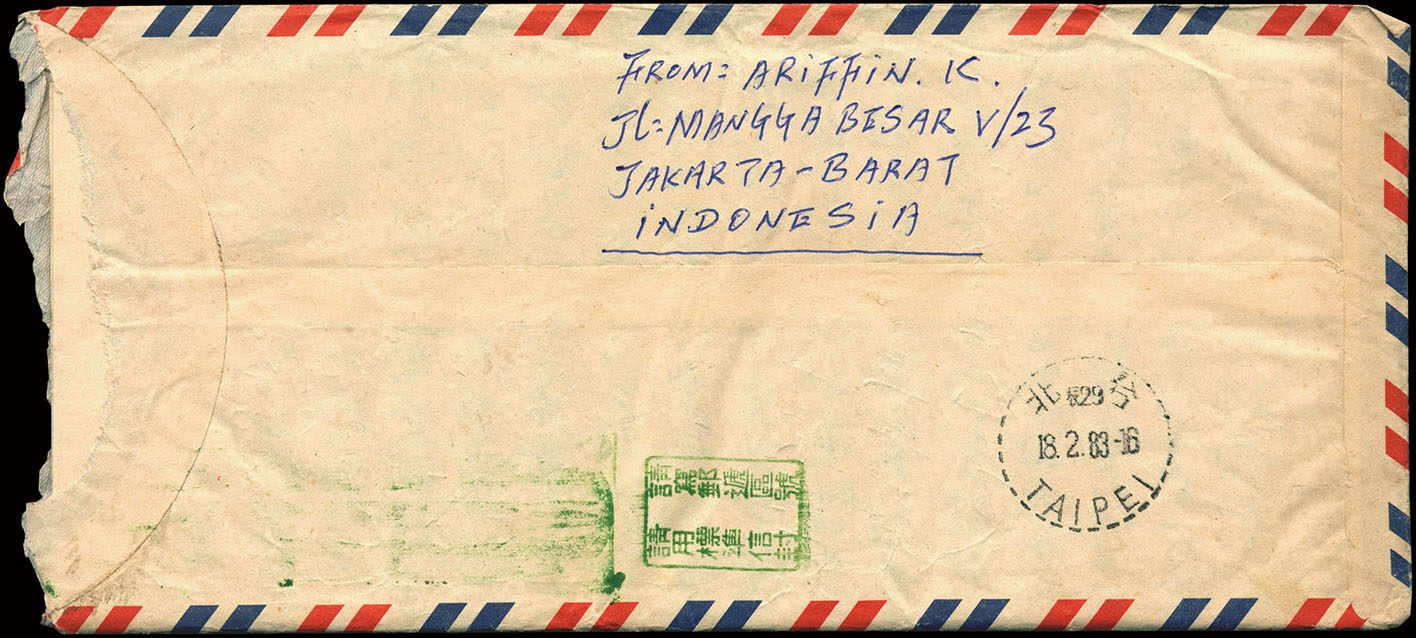 FROM= ARiFFiN. K.
JL=MANGGA BESAR V/23
JAKARTA-BARAT
iNDONESiA
請寫郵遞區號
請用標準信封
北
29
18.2.83-16
TAIPEI